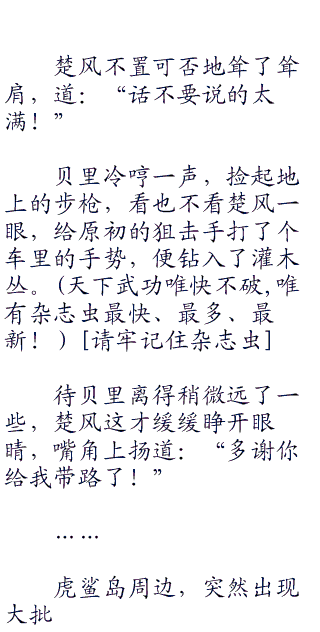 楚风不置可否地耸了耸
肩，道：“话不要说的太
满！”
贝里冷哼一声，捡起地
上的步枪，看也不看楚风一
眼，给原初的狙击手打了个
车里的手势，便钻入了灌木
丛。(天下武功唯快不破,唯
有杂志虫最快、最多、最
新！) [请牢记住杂志虫]
待贝里离得稍微远了一
些，楚风这才缓缓睁开眼
睛，嘴角上扬道：“多谢你
给我带路了！”
……
虎鲨岛周边，突然出现
大批